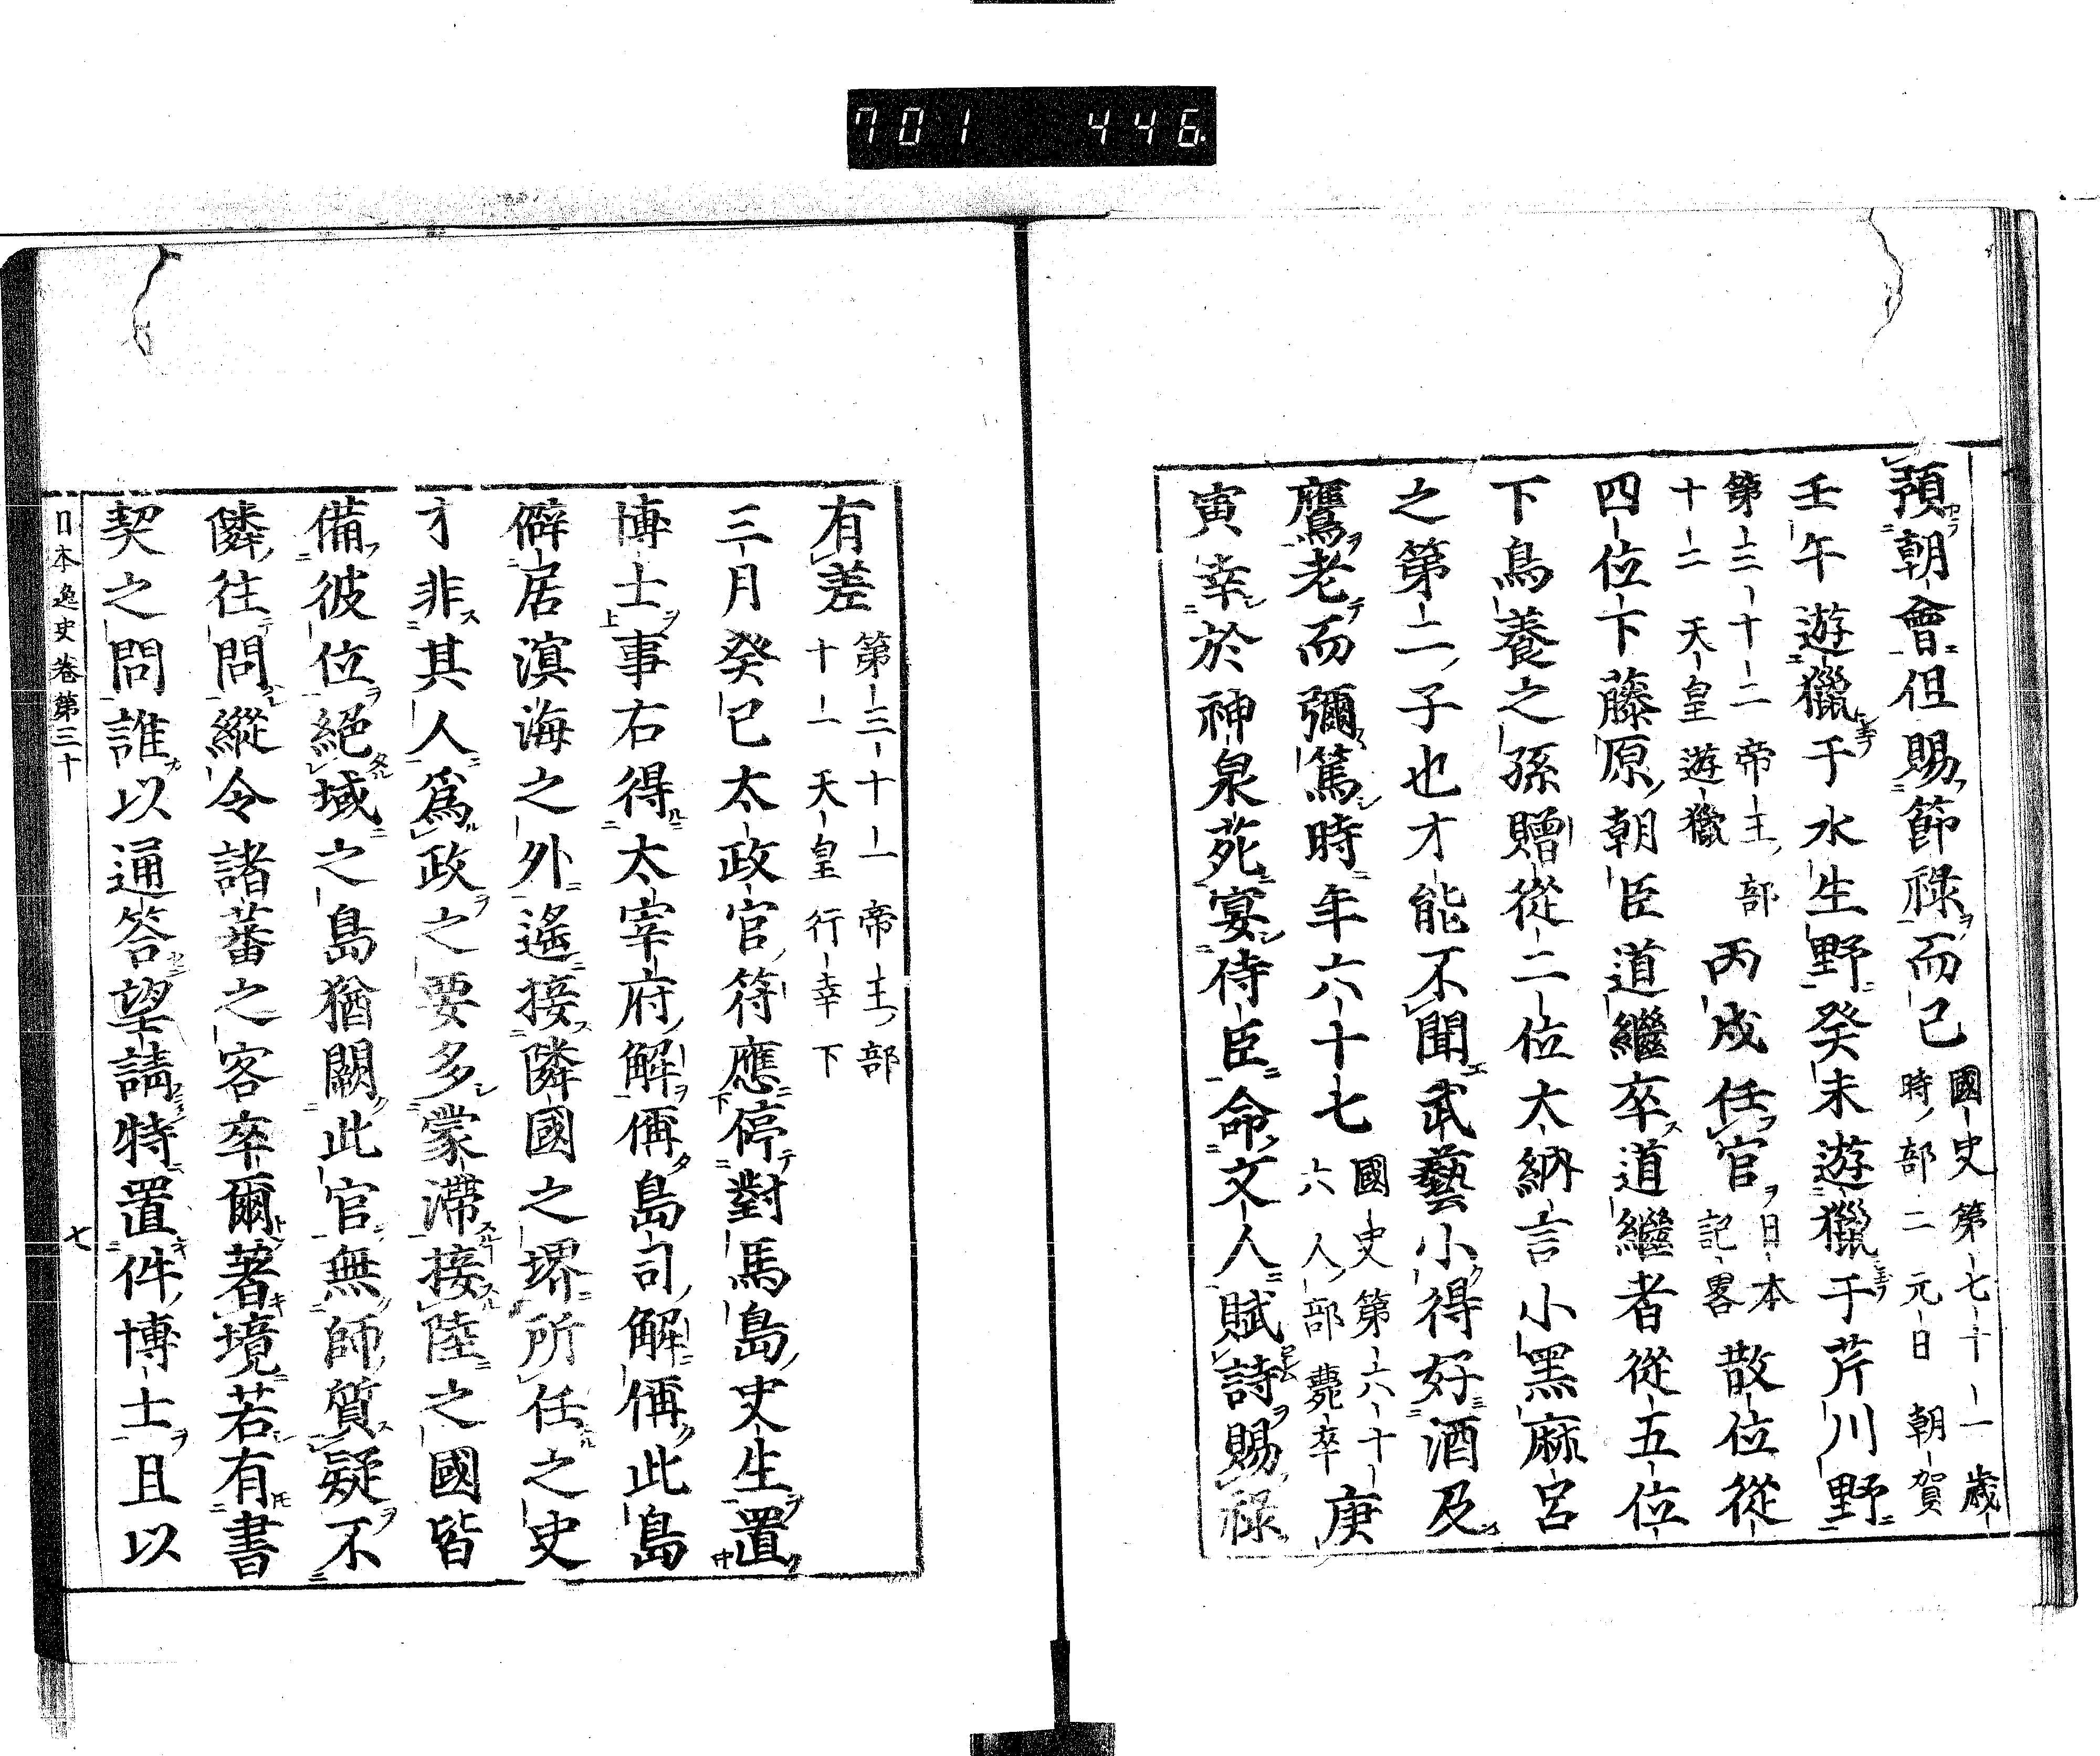 701 446
預朝會但賜節祿而已國史第七十一歲時部二元日朝賀
壬午遊獵于水生野癸未遊獵于芹川野
第三十二帝王部十二天皇遊獵丙戌任官日本記畧散位從
四位下藤原朝臣道繼卒道繼者從五位
下鳥養之孫贈從二位大納言小黑麻呂
之第二子也才能不聞武藝小得好酒及
鷹老而彌篤時年六十七國史第六十六人部薨卒庚
寅幸於神泉苑宴侍臣命文人賦詩賜祿
有差第三十一帝王部十一天皇行幸下
三月癸巳太政官符應停對馬島史生置
博士事右得太宰府解偁島司解偁此島
僻居溟海之外遙接隣國之堺所任之史
才非其人爲政之要多蒙滯接陸之國皆
備彼位絕域之島猶闕此官無師質疑不
隣往問縱令諸蕃之客卒爾著境若有書
契之問誰以通答望請特置件博士且以
日本逸史卷第三十 七